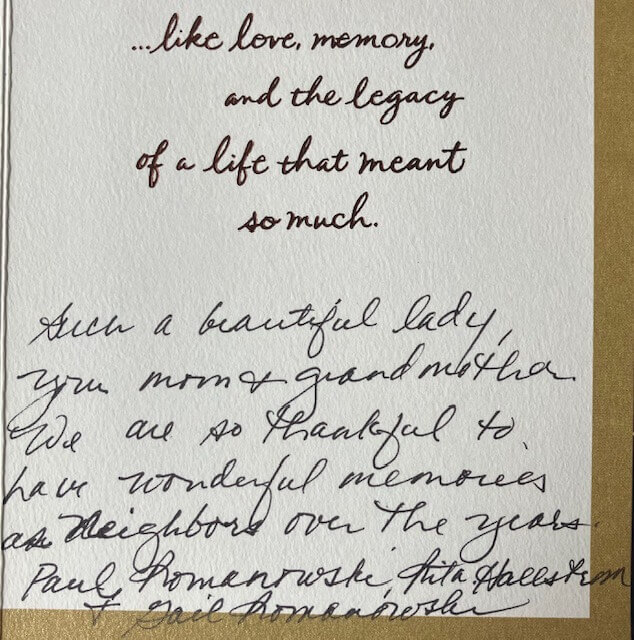 ...like love, memory,
and the legacy
of a life that meant
so much.
Such a beautiful lady,
your mom & grandmother
We are so thankful to
have wonderful memories
as Neighbors over the years.
Paul Romanowski, Rita Hallstrom
& Gail Romanowski